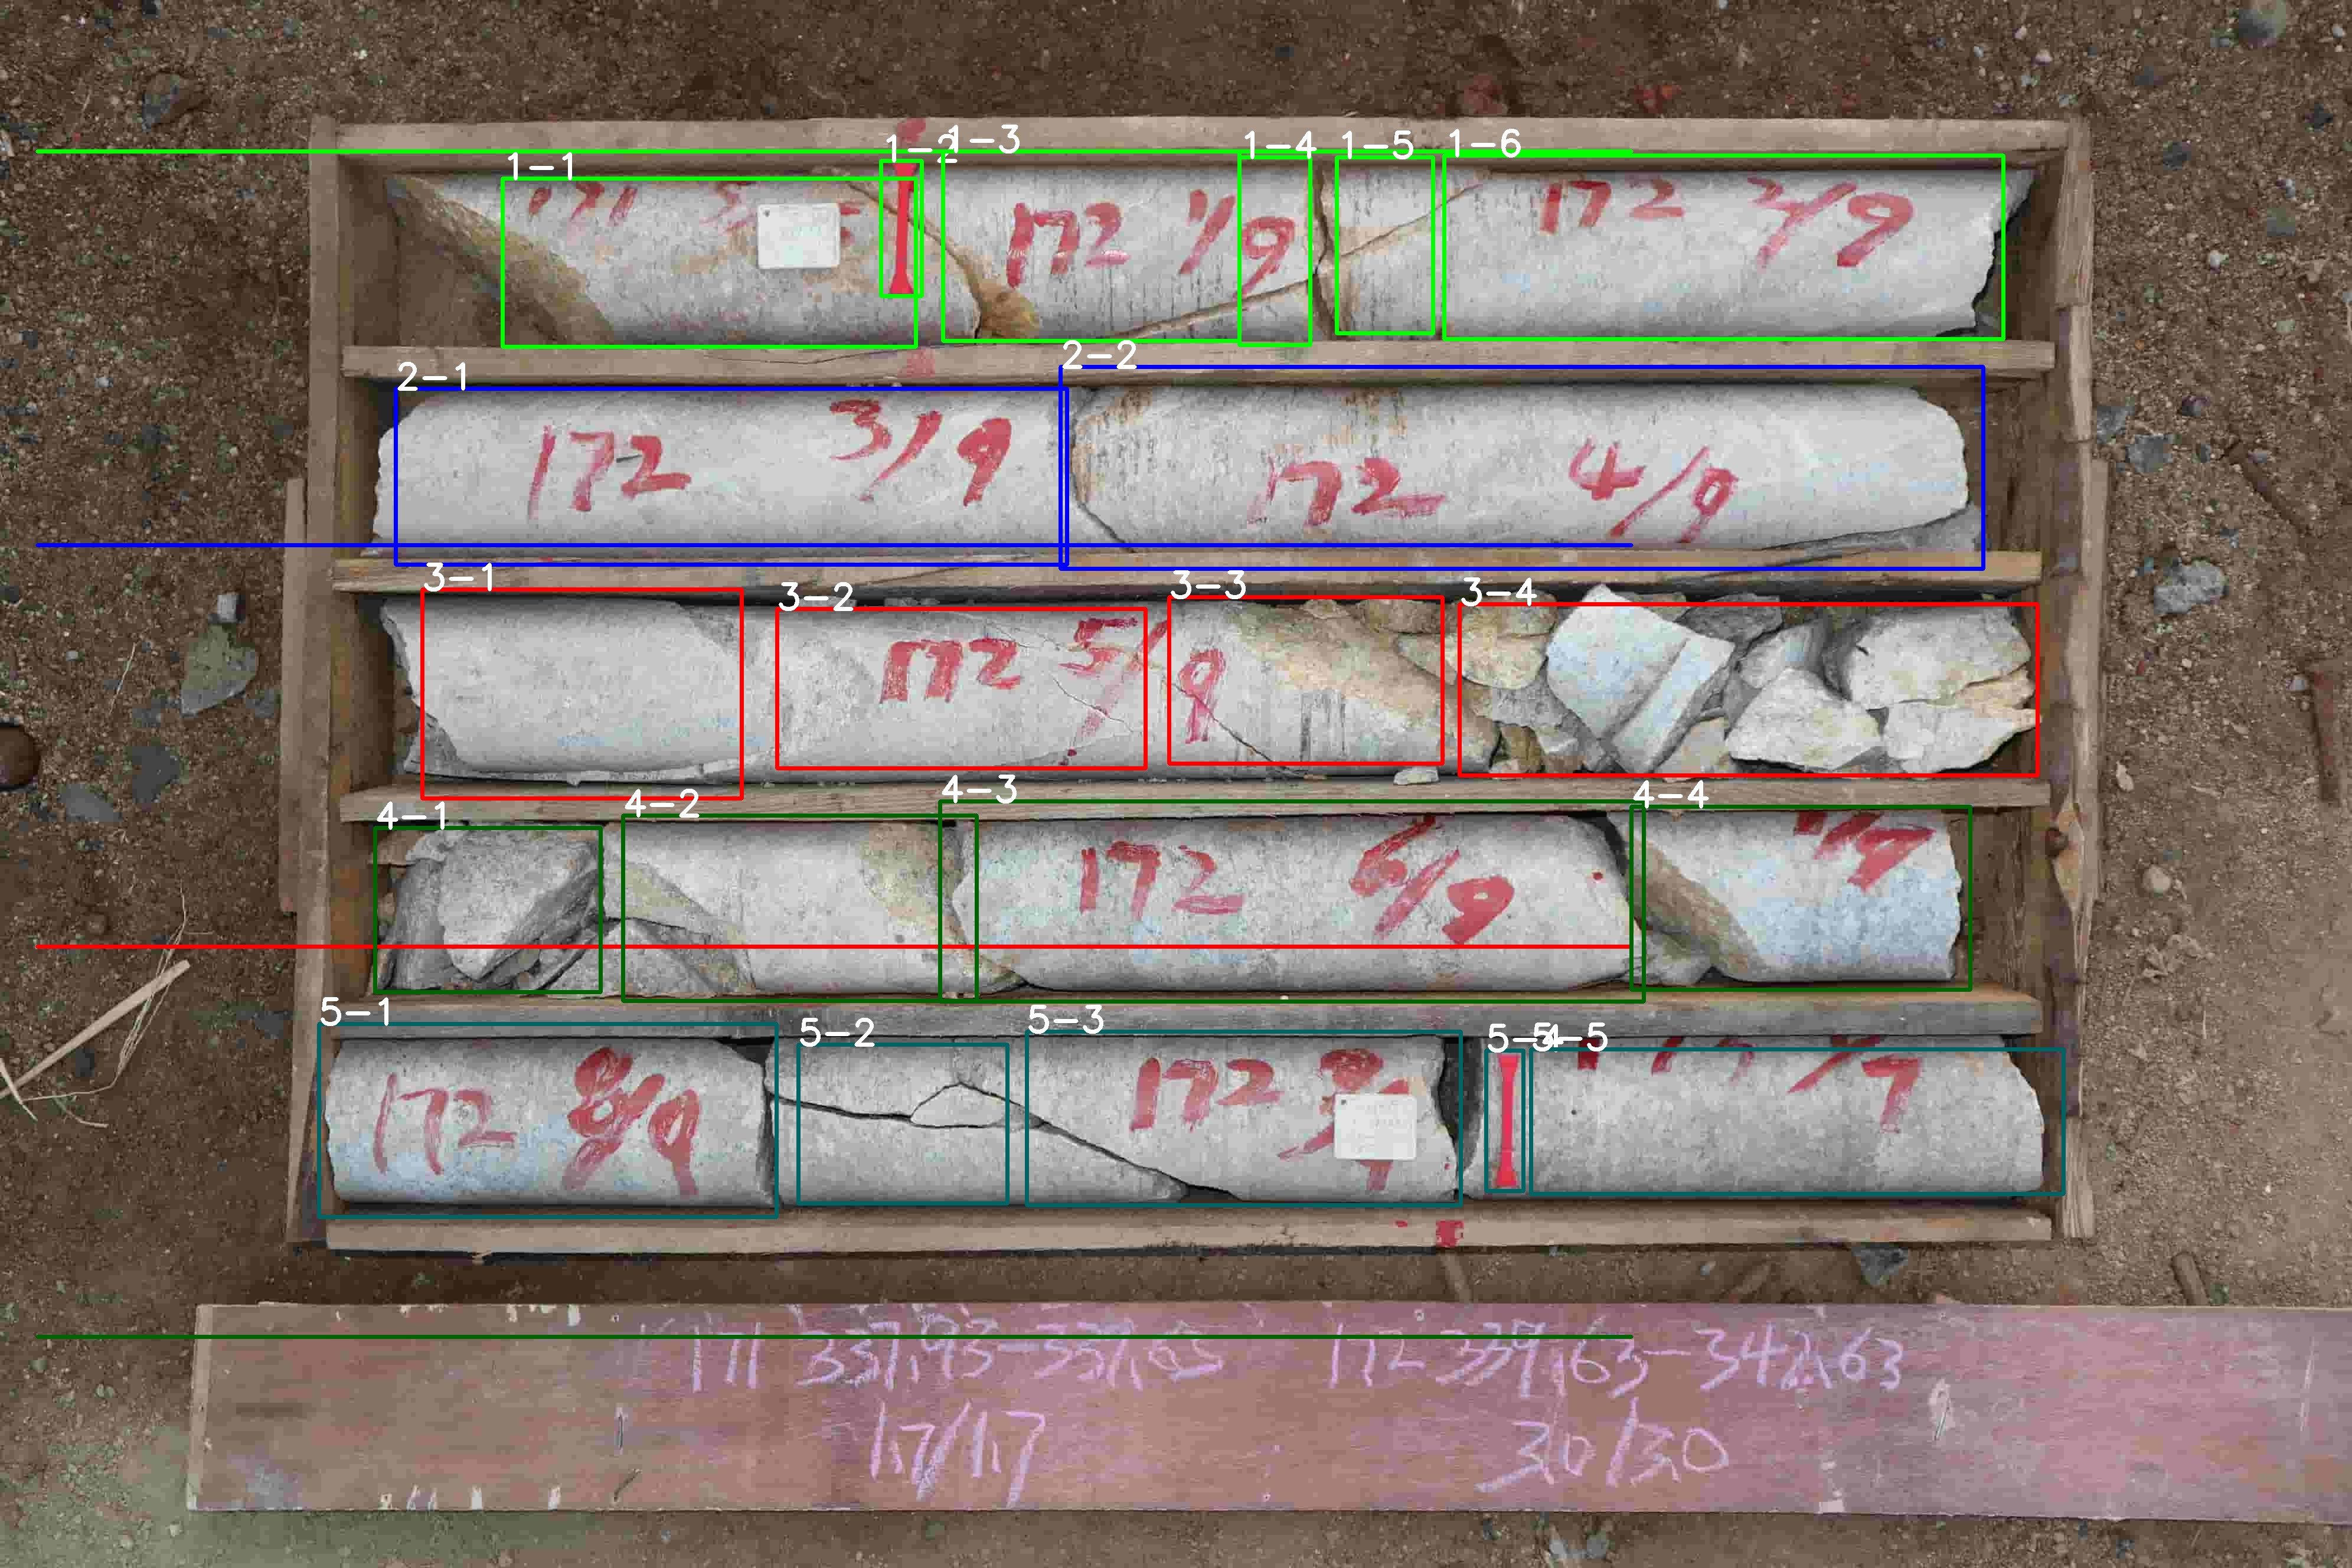 1-1 1-2 1-3 1-4 1-5 1-6
171 172 1/9 172 2/9
2-1 2-2
172 3/9 172 4/9
3-1 3-2 3-3 3-4
172 5/9
4-1 4-2 4-3 4-4
172 6/9
5-1 5-2 5-3 5-5
172 8/9 172
171 337.93-339.63 172 339.63-342.63
1.7/1.7 3.0/3.0